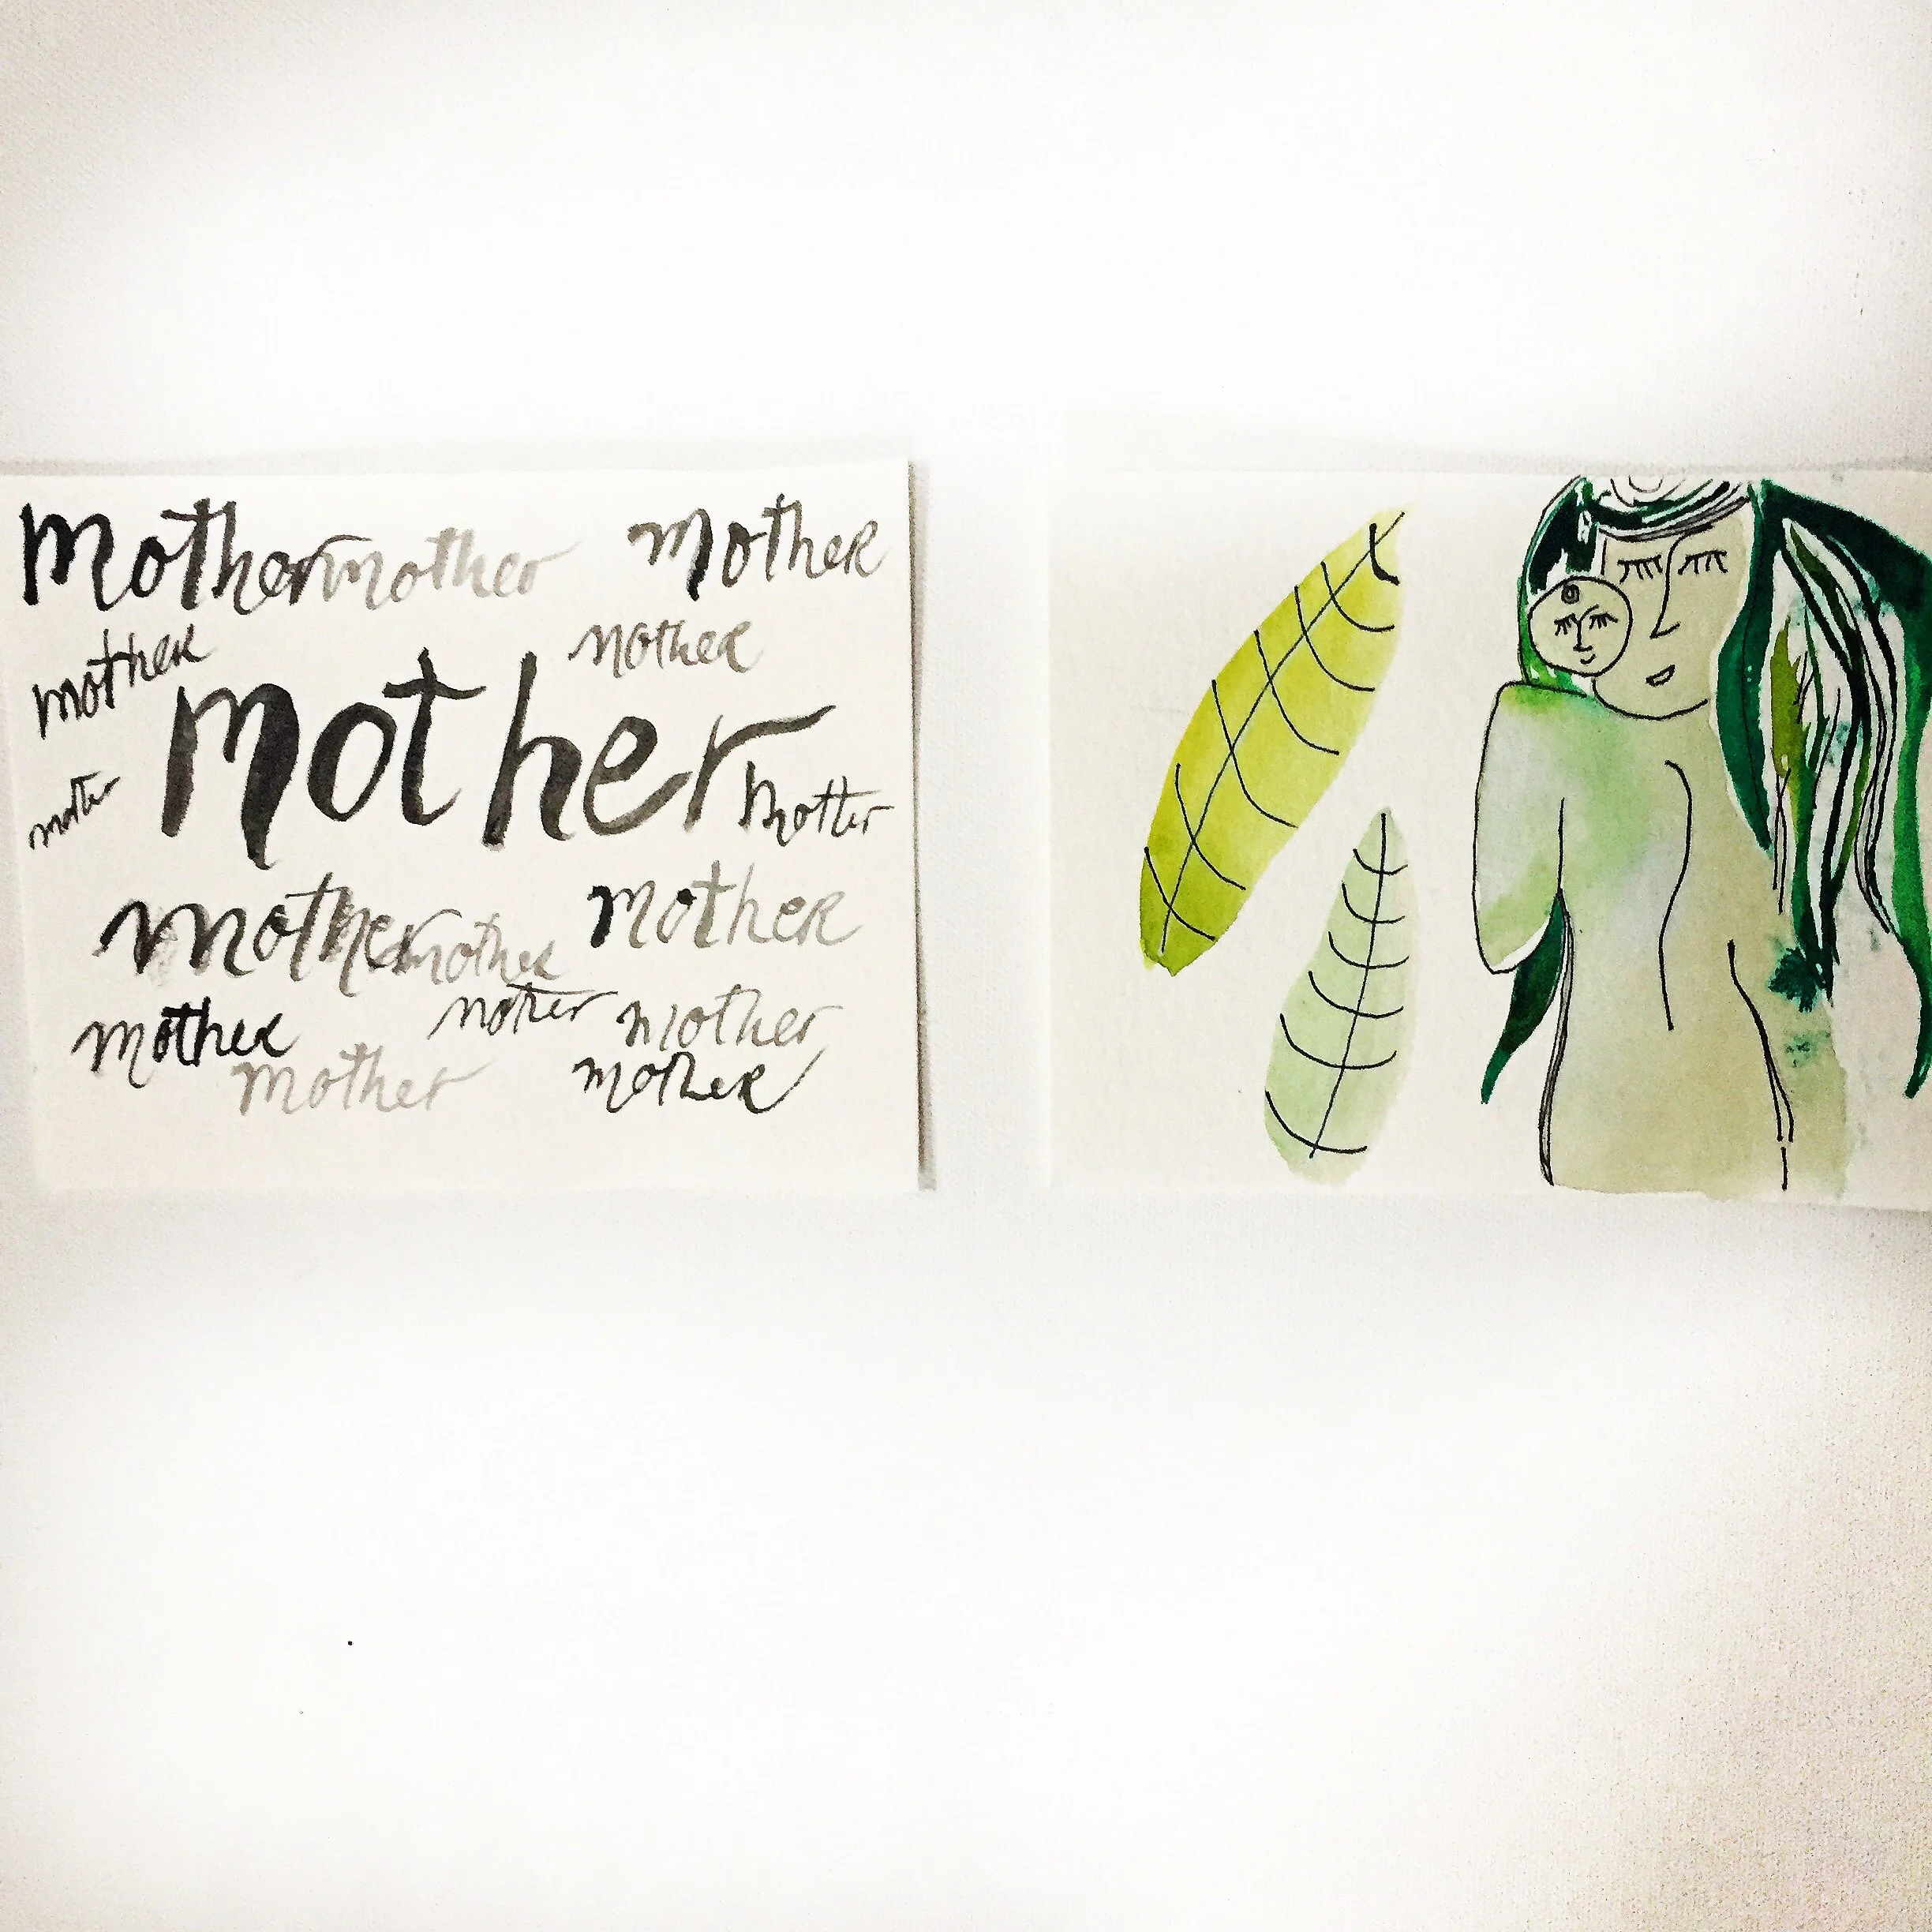 Mother mother mother
mother mother
mother
mother mother
mother mother mother
mother mother mother
mother mother